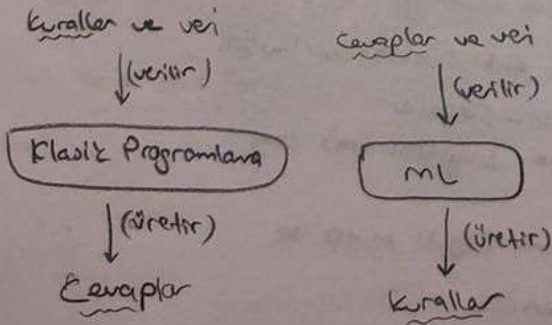 Kurallar ve veri
(verilir)
Klasik Programlama
(üretir)
Cevaplar
Cevaplar ve veri
(verilir)
ML
(üretir)
Kurallar